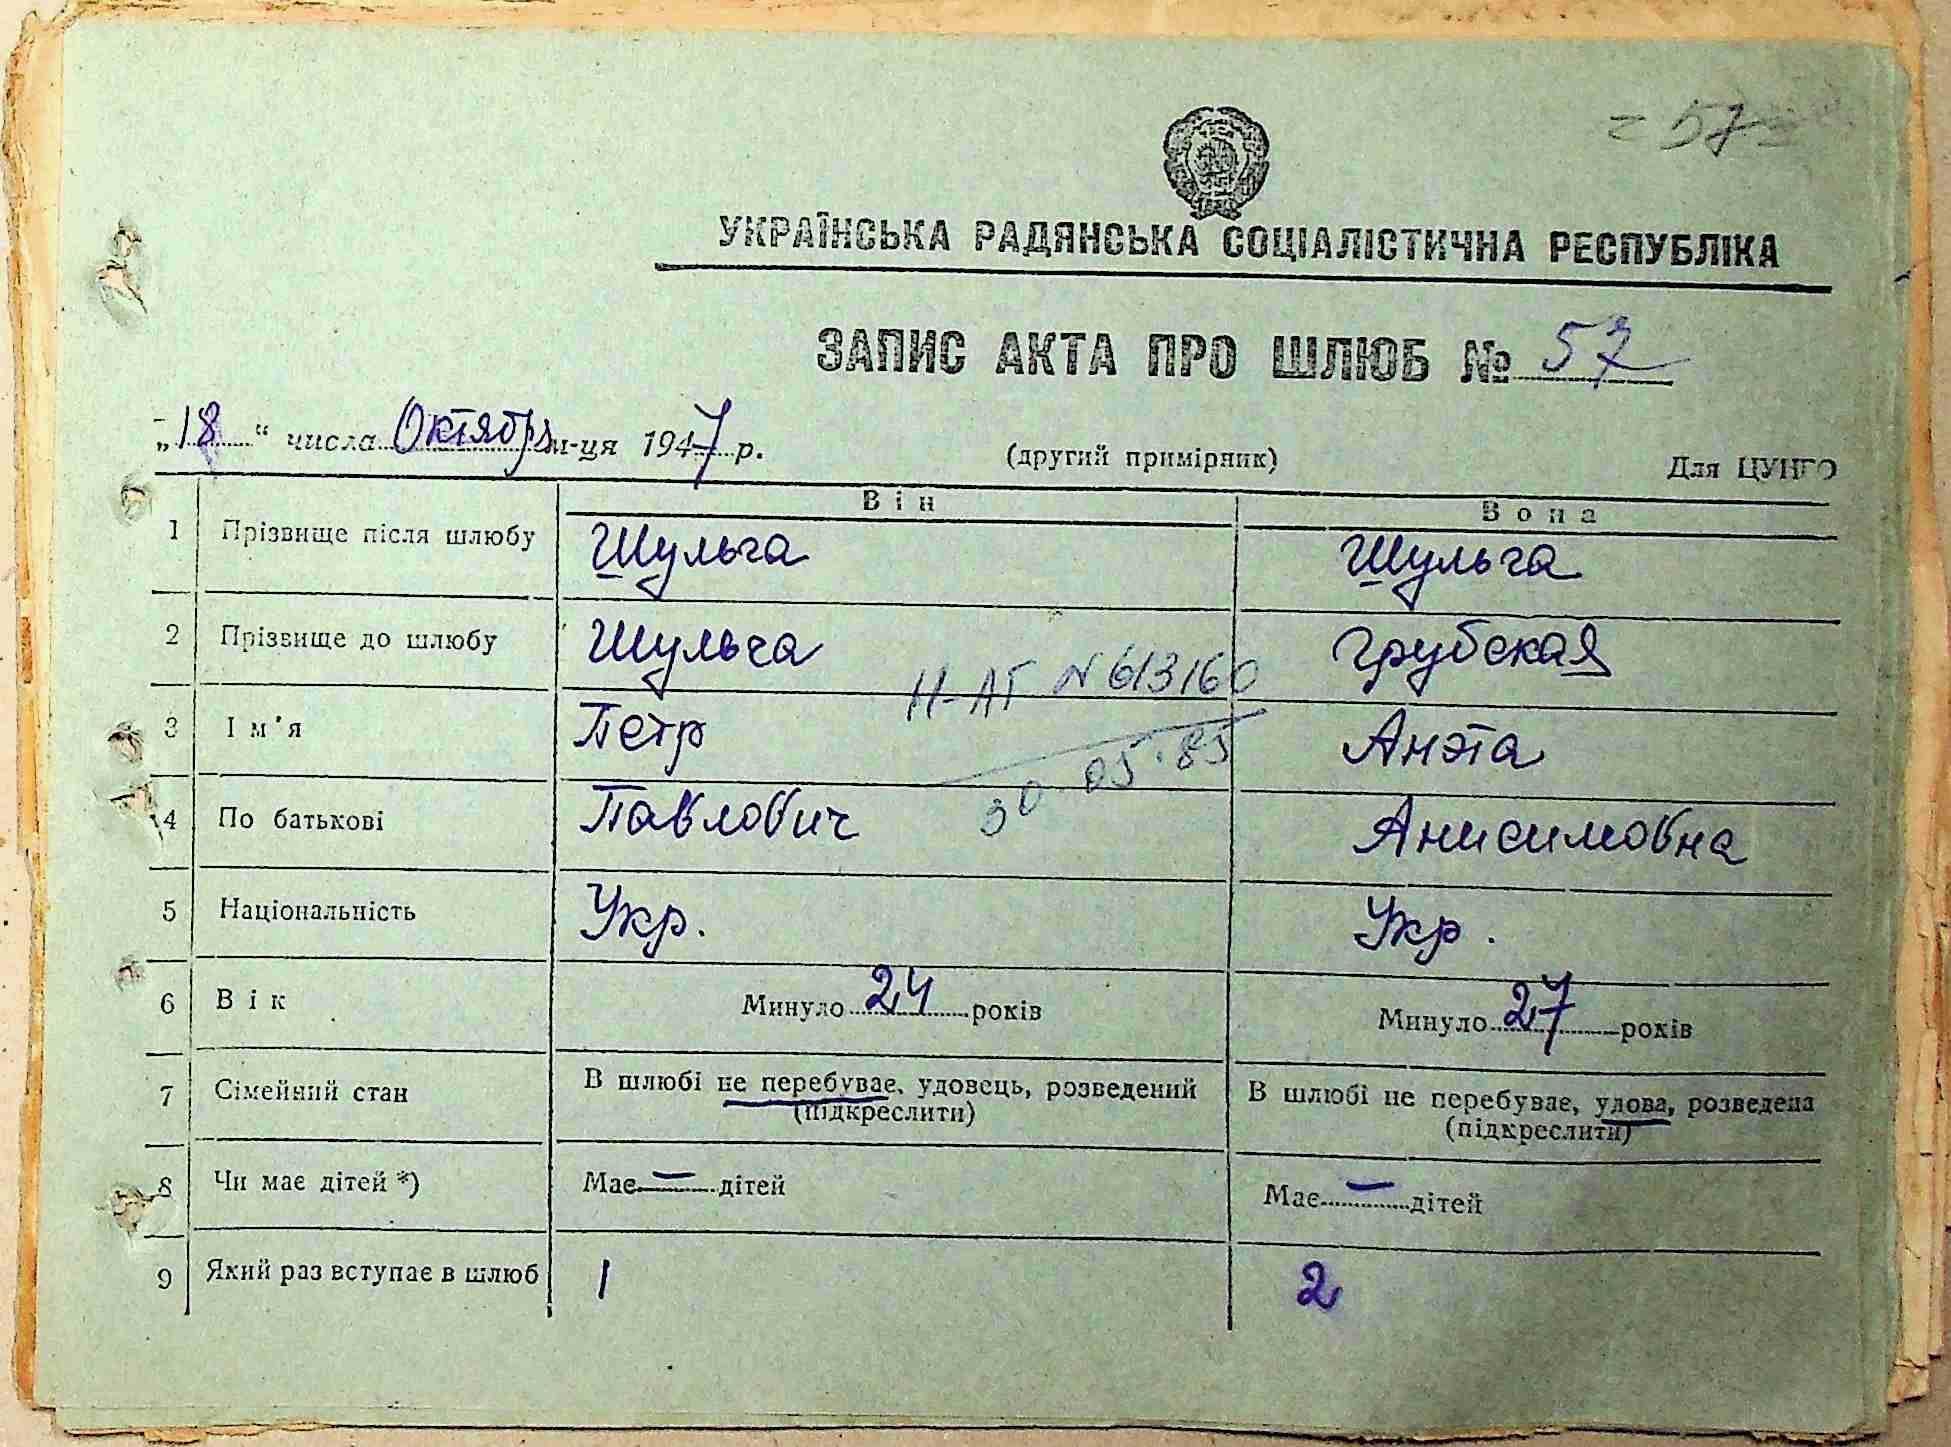 = 57 =
УКРАЇНСЬКА РАДЯНСЬКА СОЦІАЛІСТИЧНА РЕСПУБЛІКА
ЗАПИС АКТА ПРО ШЛЮБ № 57
„18“ числа Октября м-ця 1947 р. (другий примірник) Для ЦУНГО
Він Вона
1 Прізвище після шлюбу Шульга Шульга
2 Прізвище до шлюбу Шульга Грубская
II-АГ N 613160
3 Ім'я Петр Анэта
30.05.85
4 По батькові Павлович Анисимовна
5 Національність Укр. Укр.
6 Вік Минуло 24 років Минуло 27 років
7 Сімейний стан В шлюбі не перебуває, удовець, розведений В шлюбі не перебуває, удова, розведена
(підкреслити) (підкреслити)
8 Чи має дітей *) Має — дітей Має — дітей
9 Який раз вступає в шлюб 1 2